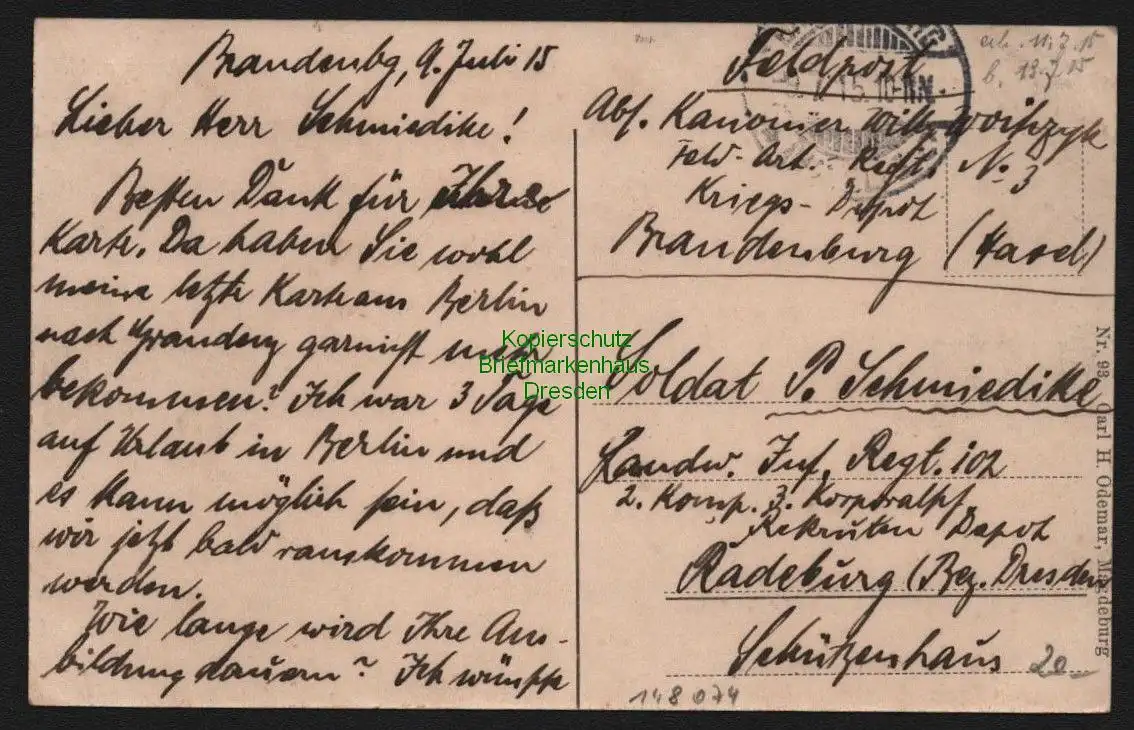 Brandenbg, 9. Juli 15
Lieber Herr Schmiedike!
Besten Dank für Ihre
Karte. Da haben Sie wohl
meine letzte Karte aus Berlin
nach Graudenz garnicht mehr
bekommen? Ich war 3 Tage
auf Urlaub in Berlin und
es kann möglich sein, daß
wir jetzt bald rauskommen
werden.
Wie lange wird Ihre Aus-
bildung dauern? Ich wünsche
Feldpost
Abs. Kanonier Willy
Feld-Art. Regt. No 3
Kriegs-Depot
Brandenburg (Havel)
Soldat P. Schmiedike
Landw. Inf. Regt. 102
2. Komp. 3. Korporalsch
Rekruten Depot
Radeburg (Bez. Dresden
Schützenhaus
20
148 074
11.7.15
b. 13.7.15
Nr. 93 Carl H. Odemar, Magdeburg
Kopierschutz
Briefmarkenhaus
Dresden